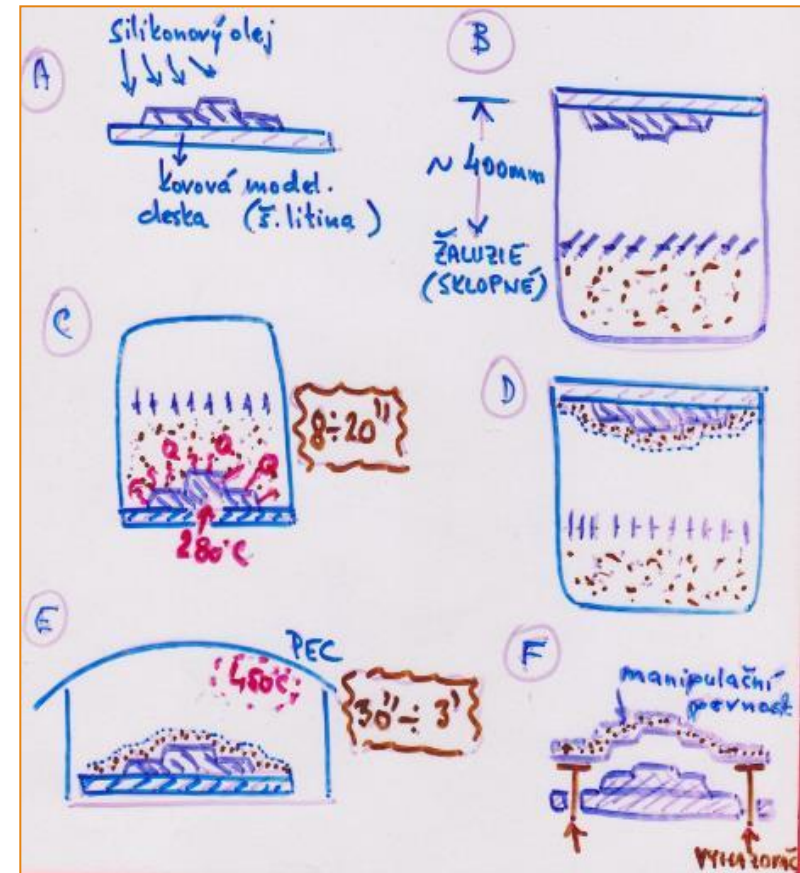 A
Silikonový olej
kovová model.
deska (š. litina)
B
~ 400mm
ŽALUZIE
(SKLOPNÉ)
C
8÷20"
Q Q Q
280°C
D
E
PEC
450°C
30" ÷ 3'
F
manipulační
pevnost
VYHAZOVAČ